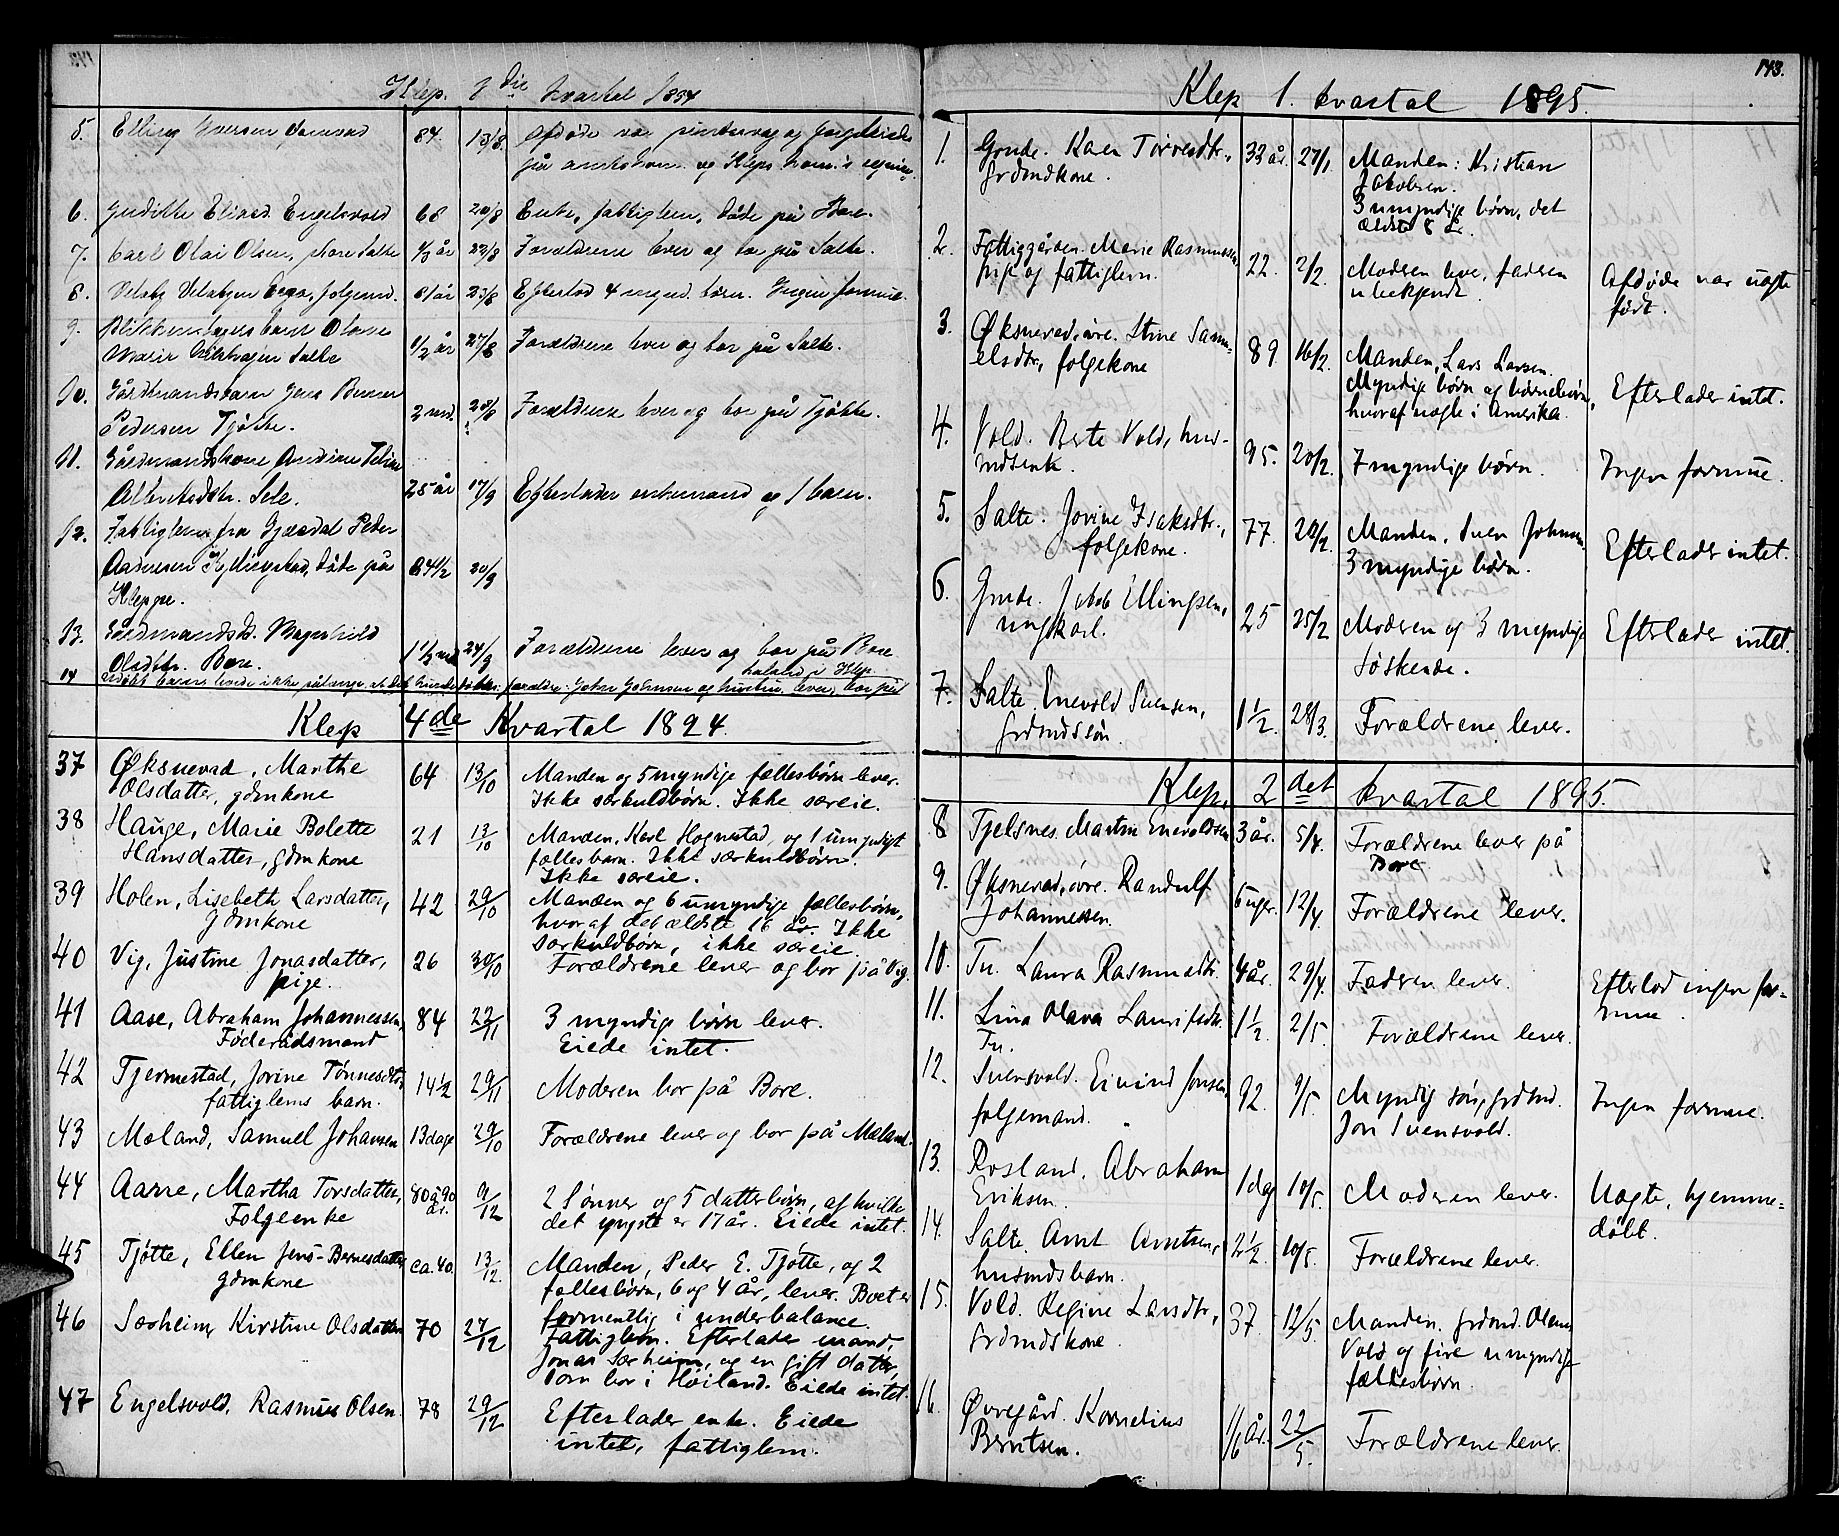 Klep. 3die kvartal 1894
5. Elling Iversen 84. 13/8. Afdøde var
på amtskom. og Kleps kom.s regning.
6. Enditte Eliasd. Engelsvold 68 20/8 Enke, fattiglem, døde på Bore.
7. Carl Olai Olsen, store Salte 1/3 år 22/8 Forældrene lever og bor på Salte.
8. 61 år 23/8 Efterlod 4 mynd. børn. Ingen formue.
9. barn Olave
Marie Salte 1/2 år 27/8 Forældrene lever og bor på Salte.
10. Gårdmandsbarn Jens Berner
Pedersen Tjøtte. 2 md. 28/8 Forældrene lever og bor på Tjøtte.
11. Gårdmandskone Andrine Teline
Albertsdtr. Sele. 25 år 17/9 Efterlader enkemand og 1 barn.
12. Fattiglem fra Gjæsdal Peder
Aadnesen Kyllingstad, døde på 64 1/2 20/9
Kleppe.
13. Gårdmandsb. Magnhild
Olsdtr. Bore. 1 1/2 md 24/9 Forældrene lever og bor på Bore
14 forældre: John Johnsen og hustru lever, bor på
Haland i Klep
Klep 4de Kvartal 1894.
37 Øksnevad, Marthe 64 13/10 Manden og 5 myndige fællesbørn lever.
Olsdatter, gdmkone Ikke særkuldbørn. Ikke særeie.
38 Hauge, Marie Bolette 21 13/10 Manden, Karl Hognestad, og 1 umyndigt
Hansdatter, gdmkone fællesbarn. Ikke særkuldbørn.
Ikke særeie.
39 Holen, Lisebeth Larsdatter, 42 29/10 Manden og 6 umyndige fællesbørn,
gdmkone hvoraf det ældste 16 år. Ikke
særkuldbørn, ikke særeie.
40 Vig, Justine Jonasdatter, 26 30/10 Forældrene lever og bor på Vig.
pige.
41 Aase, Abraham Johannessen, 84 22/11 3 myndige børn lever.
Føderådsmand Eiede intet.
42 Tjermestad, Jorine Tønnesdtr, 14 1/2 29/11 Moderen bor på Bore.
fattiglems barn.
43 Mæland, Samuel Johansen 13 dage 29/10 Forældrene lever og bor på Mæland.
44 Aarre, Martha Torsdatter, 80 à 90 år. 9/12 2 Sønner og 5 datterbørn, af hvilke
Folgeenke det yngste er 17 år. Eiede intet.
45 Tjøtte, Ellen Jens-Bernesdatter ca. 40. 13/12. Manden, Peder E. Tjøtte, og 2
gdmkone fællesbørn, 6 og 4 år, lever. Boet er
formentlig i underbalance.
46 Særheim Kirstine Olsdatter 70 27/12 Fattiglem. Efterlader mand,
Jonas Særheim, og en gift datter,
som bor i Høiland. Eiede intet.
47 Engelsvold, Rasmus Olsen. 78 29/12 Efterlader enke. Eiede
intet, fattiglem.
143.
Klep 1. kvartal 1895.
1. Grude. Karen Torresdtr., 33 år. 27/1. Manden: Kristian
grdmdkone. Jakobsen.
3 umyndige børn, det
ældste 8 år.
2. Fattiggården. Marie Rasmussen 22. 2/2. Moderen lever, faderen Afdøde var uægte
pige og fattiglem. ubekjendt. født.
3. Øksnevad, øvre. Stine Sam-
elsdtr., folgekone 89 16/2. Manden, Lars Larsen.
Myndige børn og børnebørn, Efterlader intet.
hvoraf nogle i Amerika.
4. Vold. Berte Vold, hus-
mdsenk. 95. 20/2. 7 myndige børn. Ingen formue.
5. Salte. Jorine Isaksdtr., 77. 20/2. Manden, Sven Johnsen. Efterlader intet.
folgekone. 3 myndige børn.
6. Grude. Jakob Ellingsen, 25 25/2 Moderen og 3 myndige Efterlader intet.
ungkarl. Søskende.
7. Salte Enevold Svensen, 1 1/2. 28/3. Forældrene lever.
grdmdssøn.
Klep. 2det kvartal 1895.
8 Tjelsnes. Martin Enevoldsen 3 år. 5/4. Forældrene lever på
Bore
9. Øksnevad, øvre. Randulf 6 uger. 12/4. Forældrene lever.
Johannessen.
10. Tu. Laura Rasmusdtr. 4 år. 29/4. Faderen lever. Efterlod ingen for-
mue.
11. Lina Olava Lauritsdtr. 1 1/2 2/5. Forældrene lever.
Tu.
12. Svensvold. Eivind Jonsen, 92. 9/5. Myndig søn, grdmd. Ingen formue.
folgemand. Jon Svensvold.
13. Rosland, Abraham 1 dag 10/5. Moderen lever. Uægte, hjemme-
Eriksen. døbt.
14. Salte. Arnt Arntsen, 2 1/2. 10/5. Forældrene lever.
husmdsbarn.
15. Vold. Regine Larsdtr., 37. 12/5 Manden. grdmd. Olaus
grdmdskone. Vold og fire umyndige
fællesbørn.
16. Øvregård. Kornelius 1/6 år. 22/5. Forældrene lever.
Berntsen.